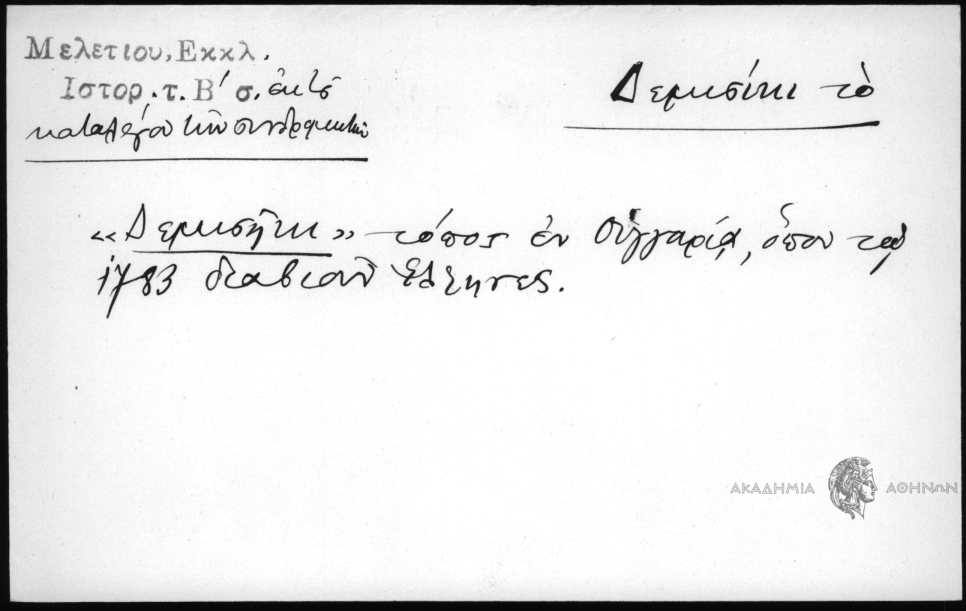 Μελετιου, Εκκλ.
Ιστορ. τ. Β' σ. ἐκτὸς
καταλόγου τῶν συνδρομητῶν
Δερκσίνι τὸ
«Δερκσῆνι» τόπος ἐν Οὑγγαρίᾳ, ὅπου τῷ
1783 διαβιοῦν Ἕλληνες.
ΑΚΑΔΗΜΙΑ ΑΘΗΝΩΝ